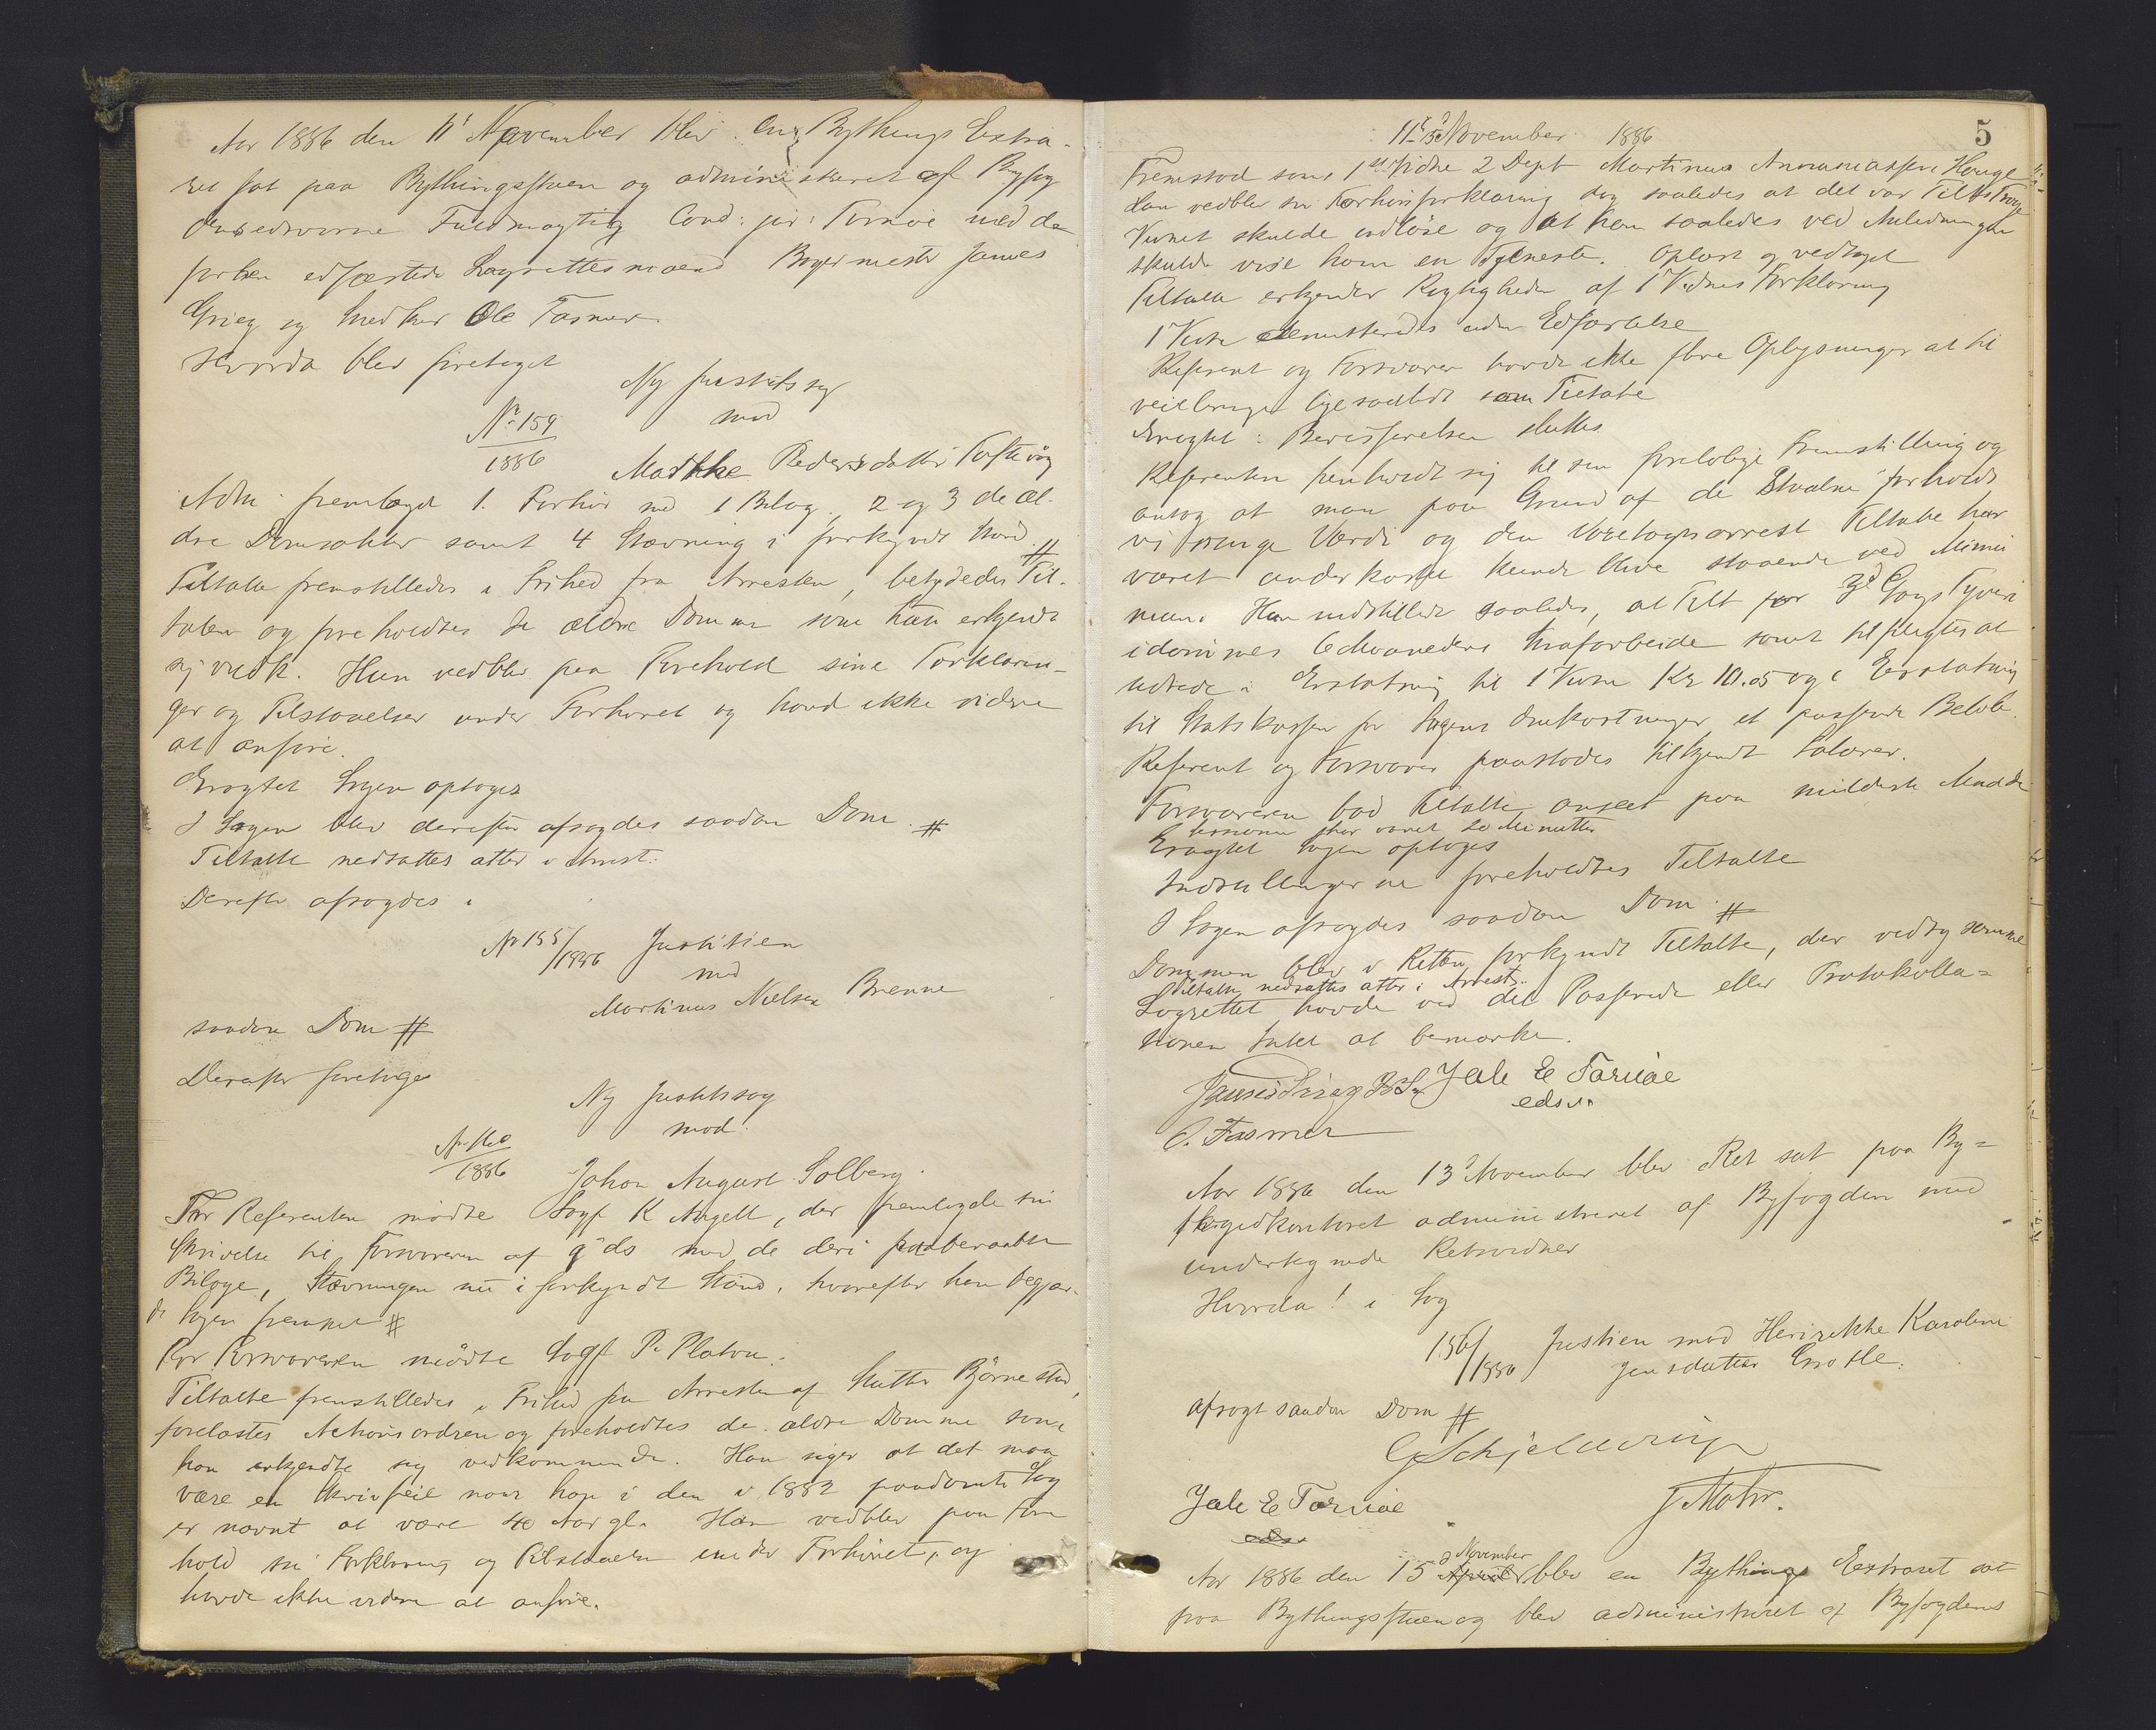 Aar 1886 den 11' November blev en Bythings Extra-
ret sat paa Bythingsstuen og administreret af Byfog
dens edsvorne Fuldmægtig Cand: jur: Tornöe med de
forhen edfæstede Lagrettesmænd Bagermester James
Grieg og Snedker Ole Fasmer.
Hvorda blev foretaget
Ny Justitssag
No 159
1886
mod
Marthe Pedersdatter Toftevåg
Adm. fremlagde 1. Forhör med 1 Bilag. 2 og 3 de æl-
dre Domsakter samt 4 Stævning i forkyndt Stand. #
Tiltalte fremstilledes i Frihed fra Arresten, betydedes Til-
talen og foreholdtes de ældre Domme som hun erkjendte
sig vedk. Hun vedblev paa Forehold sine Forklarin-
ger og Tilstaaelser under Forhöret og havde ikke videre
at anföre.
Eragtet Sagen optages
I Sagen blev derefter afsagdes saadan Dom #
Tiltalte nedsattes atter i Arrest.
Derefter afsagdes i
No 155/1886 Justitien
mod
Martinus Nielsen Brenne
saadan Dom #
Derefter foretoges
Ny Justitssag
mod
No 160
1886
Johan August Solberg.
For Referenten mödte Sagf K Angell, der fremlagde sin
Skrivelse til Forsvareren af 9' ds med de deri paaberaabte
Bilage, Stævningen nu i forkyndt Stand, hvorefter han begjær-
de Sagen fremmet #
For Forsvareren mödte Sagf P. Platou.
Tiltalte fremstilledes i Frihed fra Arresten af Slutter Björnestad,
forelæstes Actionsordren og foreholdtes de ældre Domme som
han erkjendte sig vedkommende. Han siger at det maa
være en Skrivfeil naar han i den i 1882 paadömte Sag
er nævnt at være 40 Aar gl. Han vedblev paa Fore
hold sin Forklaring og Tilstaaelse under Forhöret, og
havde ikke videre at anföre.
11' 13' November 1886
5
Fremstod som 1ste Vidne 2 Dept Martinus Annaniassen Hauge
Han vedblev sin Forhörsforklaring dog saaledes at det var Tilts Tröje
Vidnet skulde indlöse og at han saaledes ved Anledningen
skulde vise ham en Tjeneste. Oplæst og vedtaget
Tiltalte erkjender Rigtigheden af 1 Vidnes Forklaring
1 Vidne demitteredes uden Edfæstelse
Referent og Forsvarer havde ikke flere Oplysninger at til
veiebringe ligesaalidt som Tiltalte
Eragtet: Bevisförelsen sluttes
Referenten henholdt sig til sin forelöbige Fremstilling og
antog at man paa Grund af de Stjaalne forholds
vis ringe Værdi og den Varetægtsarrest Tiltalte har
været underkastet kunde blive staaende ved Mini
mum. Han indstillede saaledes, at Tilt for 3d Gangs Tyveri
idömmes 6 Maaneders Strafarbeide samt tilpligtes at
udrede i Erstatning til 1 Vidne Kr 10.05 og i Erstatning
til Statskassen for Sagens Omkostninger et passende Belöb.
Referent og Forsvarer paastodes tilkjendt Salærer.
Forsvareren bad Tiltalte anseet paa mildeste Maade
har varet 20 Minutter
Eragtet Sagen optages
Indstillingerne foreholdtes Tiltalte
I Sagen afsagdes saadan Dom #
Dommen blev i Retten forkyndt Tiltalte, der vedtog samme
Tiltalte nedsattes atter i Arrest.
Lagrettet havde ved det Passerede eller Protokolla=
tionen Intet at bemærke.
James Grieg Jale E Tornöe
edsv.
O. Fasmer
Aar 1886 den 13' November blev Ret sat paa By=
fogedkontoret administreret af Byfogden med
undertegnede Retsvidner
Hvorda! i Sag
156/1886 Justien mod Henrikke Karoline
Jensdatter Grotle.
afsagt saadan Dom #
G Schjelderup
Jale E Tornöe J Mohr.
edsv.
November
Aar 1886 den 15' April blev en Bythings Extraret sat
paa Bythingsstuen og blev administreret af Byfogdens